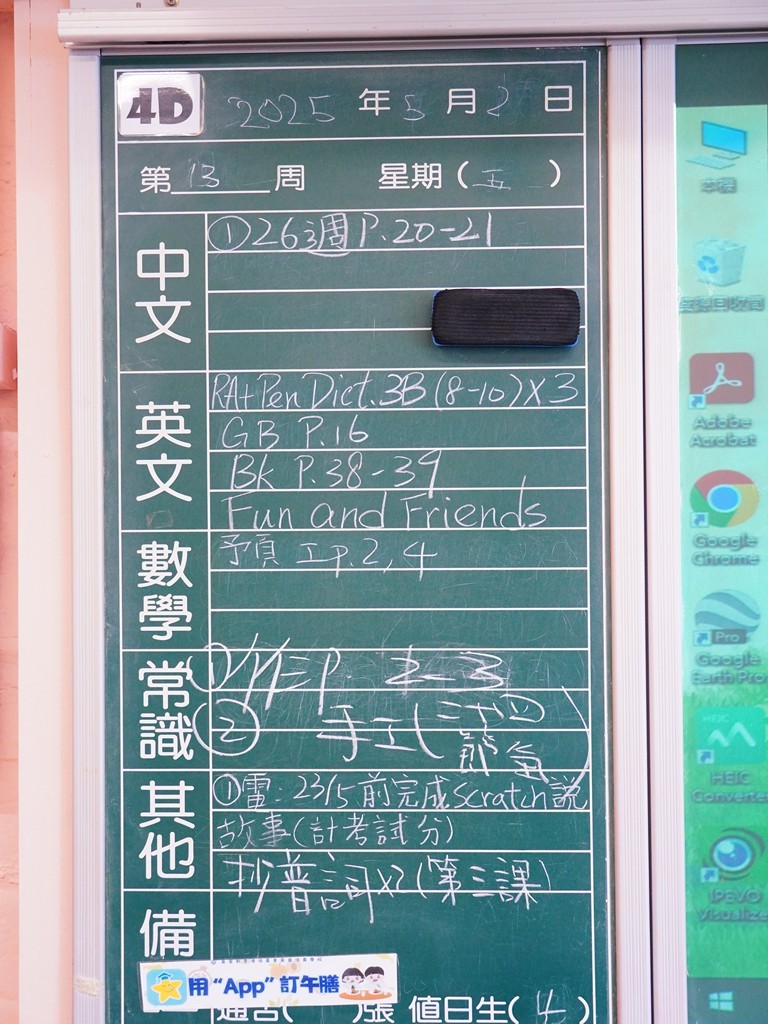 4D 2025 年 5 月 2 日
第 13 周 星期（五）
中文
①26週 P.20-21
英文
RA+Pen Dict.3B(8-10)×3
GB P.16
Bk P.38-39
Fun and Friends
數學
予頁 工p.2,4
常識
① P 2-3
② 手工(二十四節氣)
其他
①電：23/5前完成Scratch說
故事(計考試分)
抄普詞x2(第三課)
備
用“App”訂午膳
張 值日生(4)
本機
資源回收筒
Adobe
Acrobat
Google
Chrome
Pro
Google
Earth Pro
HEIC
HEIC
Converter
IPEVO
Visualize